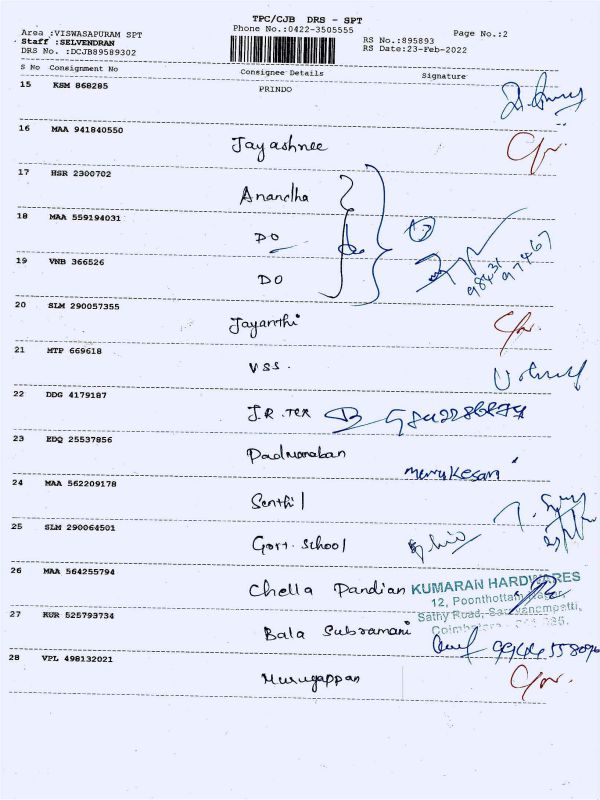 TPC/CJB DRS - SPT
Area :VISWASAPURAM SPT Phone No.:0422-3505555 Page No.:2
Staff :SELVENDRAN RS No.:895893
DRS No. :DCJB89589302 RS Date:23-Feb-2022
S No Consignment No Consignee Details Signature
15 KSM 868285 PRINDO
16 MAA 941840550
Jayashree
17 HSR 2300702
Anandha
18 MAA 559194031
DO
19 VNB 366526
DO
20 SLM 290057355
Jayanthi
21 MTP 669618
VSS.
22 DDG 4179187
J.R. Tex
23 EDQ 25537856
Padmanaban
24 MAA 562209178
Senthil
25 SLM 290064501
Govt. School
26 MAA 564255794
Chella Pandian KUMARAN HARDWARES
12, Poonthottam Nagar,
27 KUR 525793734
Sathy Road, Saravanampatti,
Bala Subramani
28 VPL 498132021
Murugappan